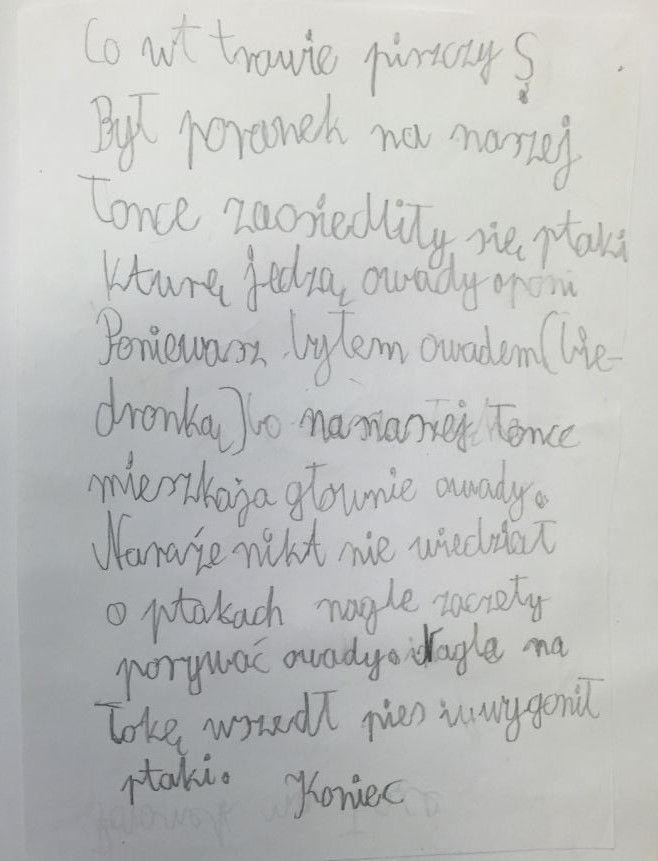 Co wt trawie piszczy ?
Był poranek na naszej
łonce zaosiedliły się ptaki
kturę jedzą owady oponi
Poniewasz byłem owadem (bie-
dronką) bo na naszej łonce
mieszkaja głownie owady.
Naraźe nikt nie wiedział
o ptakach nagle zaczeły
porywać owady. Nagle na
łokę wszedł pies i wygonił
ptaki. Koniec